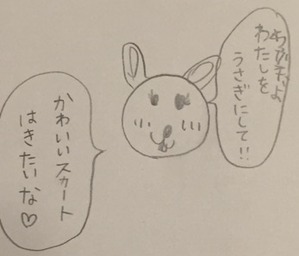 わたしを
うさぎにして!!
かわいいスカート
はきたいな♡